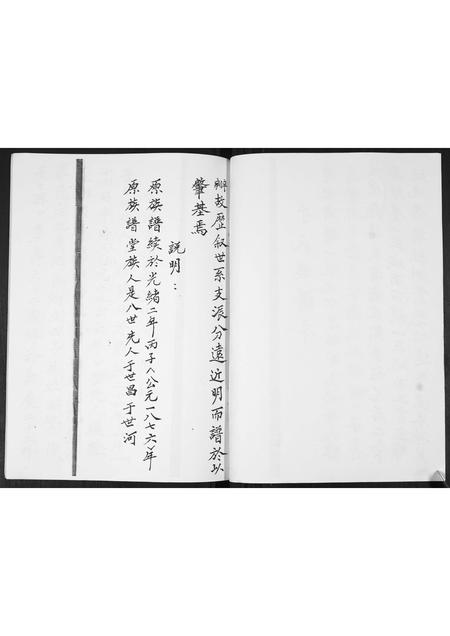 故歷叙世系支派分遠近明而譜於以
肇基焉
説明：
原族譜續於光緒二年丙子（公元一八七六）年
原族譜堂族人是八世先人于世昌于世河